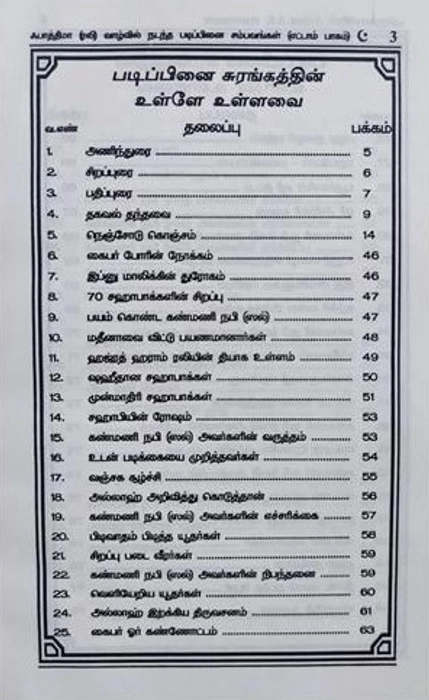 ஃபாத்திமா (ரலி) வாழ்வில் நடந்த படிப்பினை சம்பவங்கள் (எட்டாம் பாகம்) ☪ 3
படிப்பினை சுரங்கத்தின்
உள்ளே உள்ளவை
வ.எண் தலைப்பு பக்கம்
1. அணிந்துரை 5
2. சிறப்புரை 6
3. பதிப்புரை 7
4. தகவல் தந்தவை 9
5. நெஞ்சோடு கொஞ்சம் 14
6. கைபர் போரின் நோக்கம் 46
7. இப்னு மாலிக்கின் துரோகம் 46
8. 70 சஹாபாக்களின் சிறப்பு 47
9. பயம் கொண்ட கண்மணி நபி (ஸல்) 47
10. மதீனாவை விட்டு பயணமானார்கள் 48
11. ஹஜ்ரத் ஹராம் ரலியின் தியாக உள்ளம் 49
12. ஷஹீதான சஹாபாக்கள் 50
13. முன்மாதிரி சஹாபாக்கள் 51
14. சஹாபியின் ரோஷம் 53
15. கண்மணி நபி (ஸல்) அவர்களின் வருத்தம் 53
16. உடன் படிக்கையை முறித்தவர்கள் 54
17. வஞ்சக சூழ்ச்சி 55
18. அல்லாஹ் அறிவித்து கொடுத்தான் 56
19. கண்மணி நபி (ஸல்) அவர்களின் எச்சரிக்கை 57
20. பிடிவாதம் பிடித்த யூதர்கள் 58
21. சிறப்பு படை வீரர்கள் 59
22. கண்மணி நபி (ஸல்) அவர்களின் நிபந்தனை 59
23. வெளியேறிய யூதர்கள் 60
24. அல்லாஹ் இறக்கிய திருவசனம் 61
25. கைபர் ஓர் கண்ணோட்டம் 63